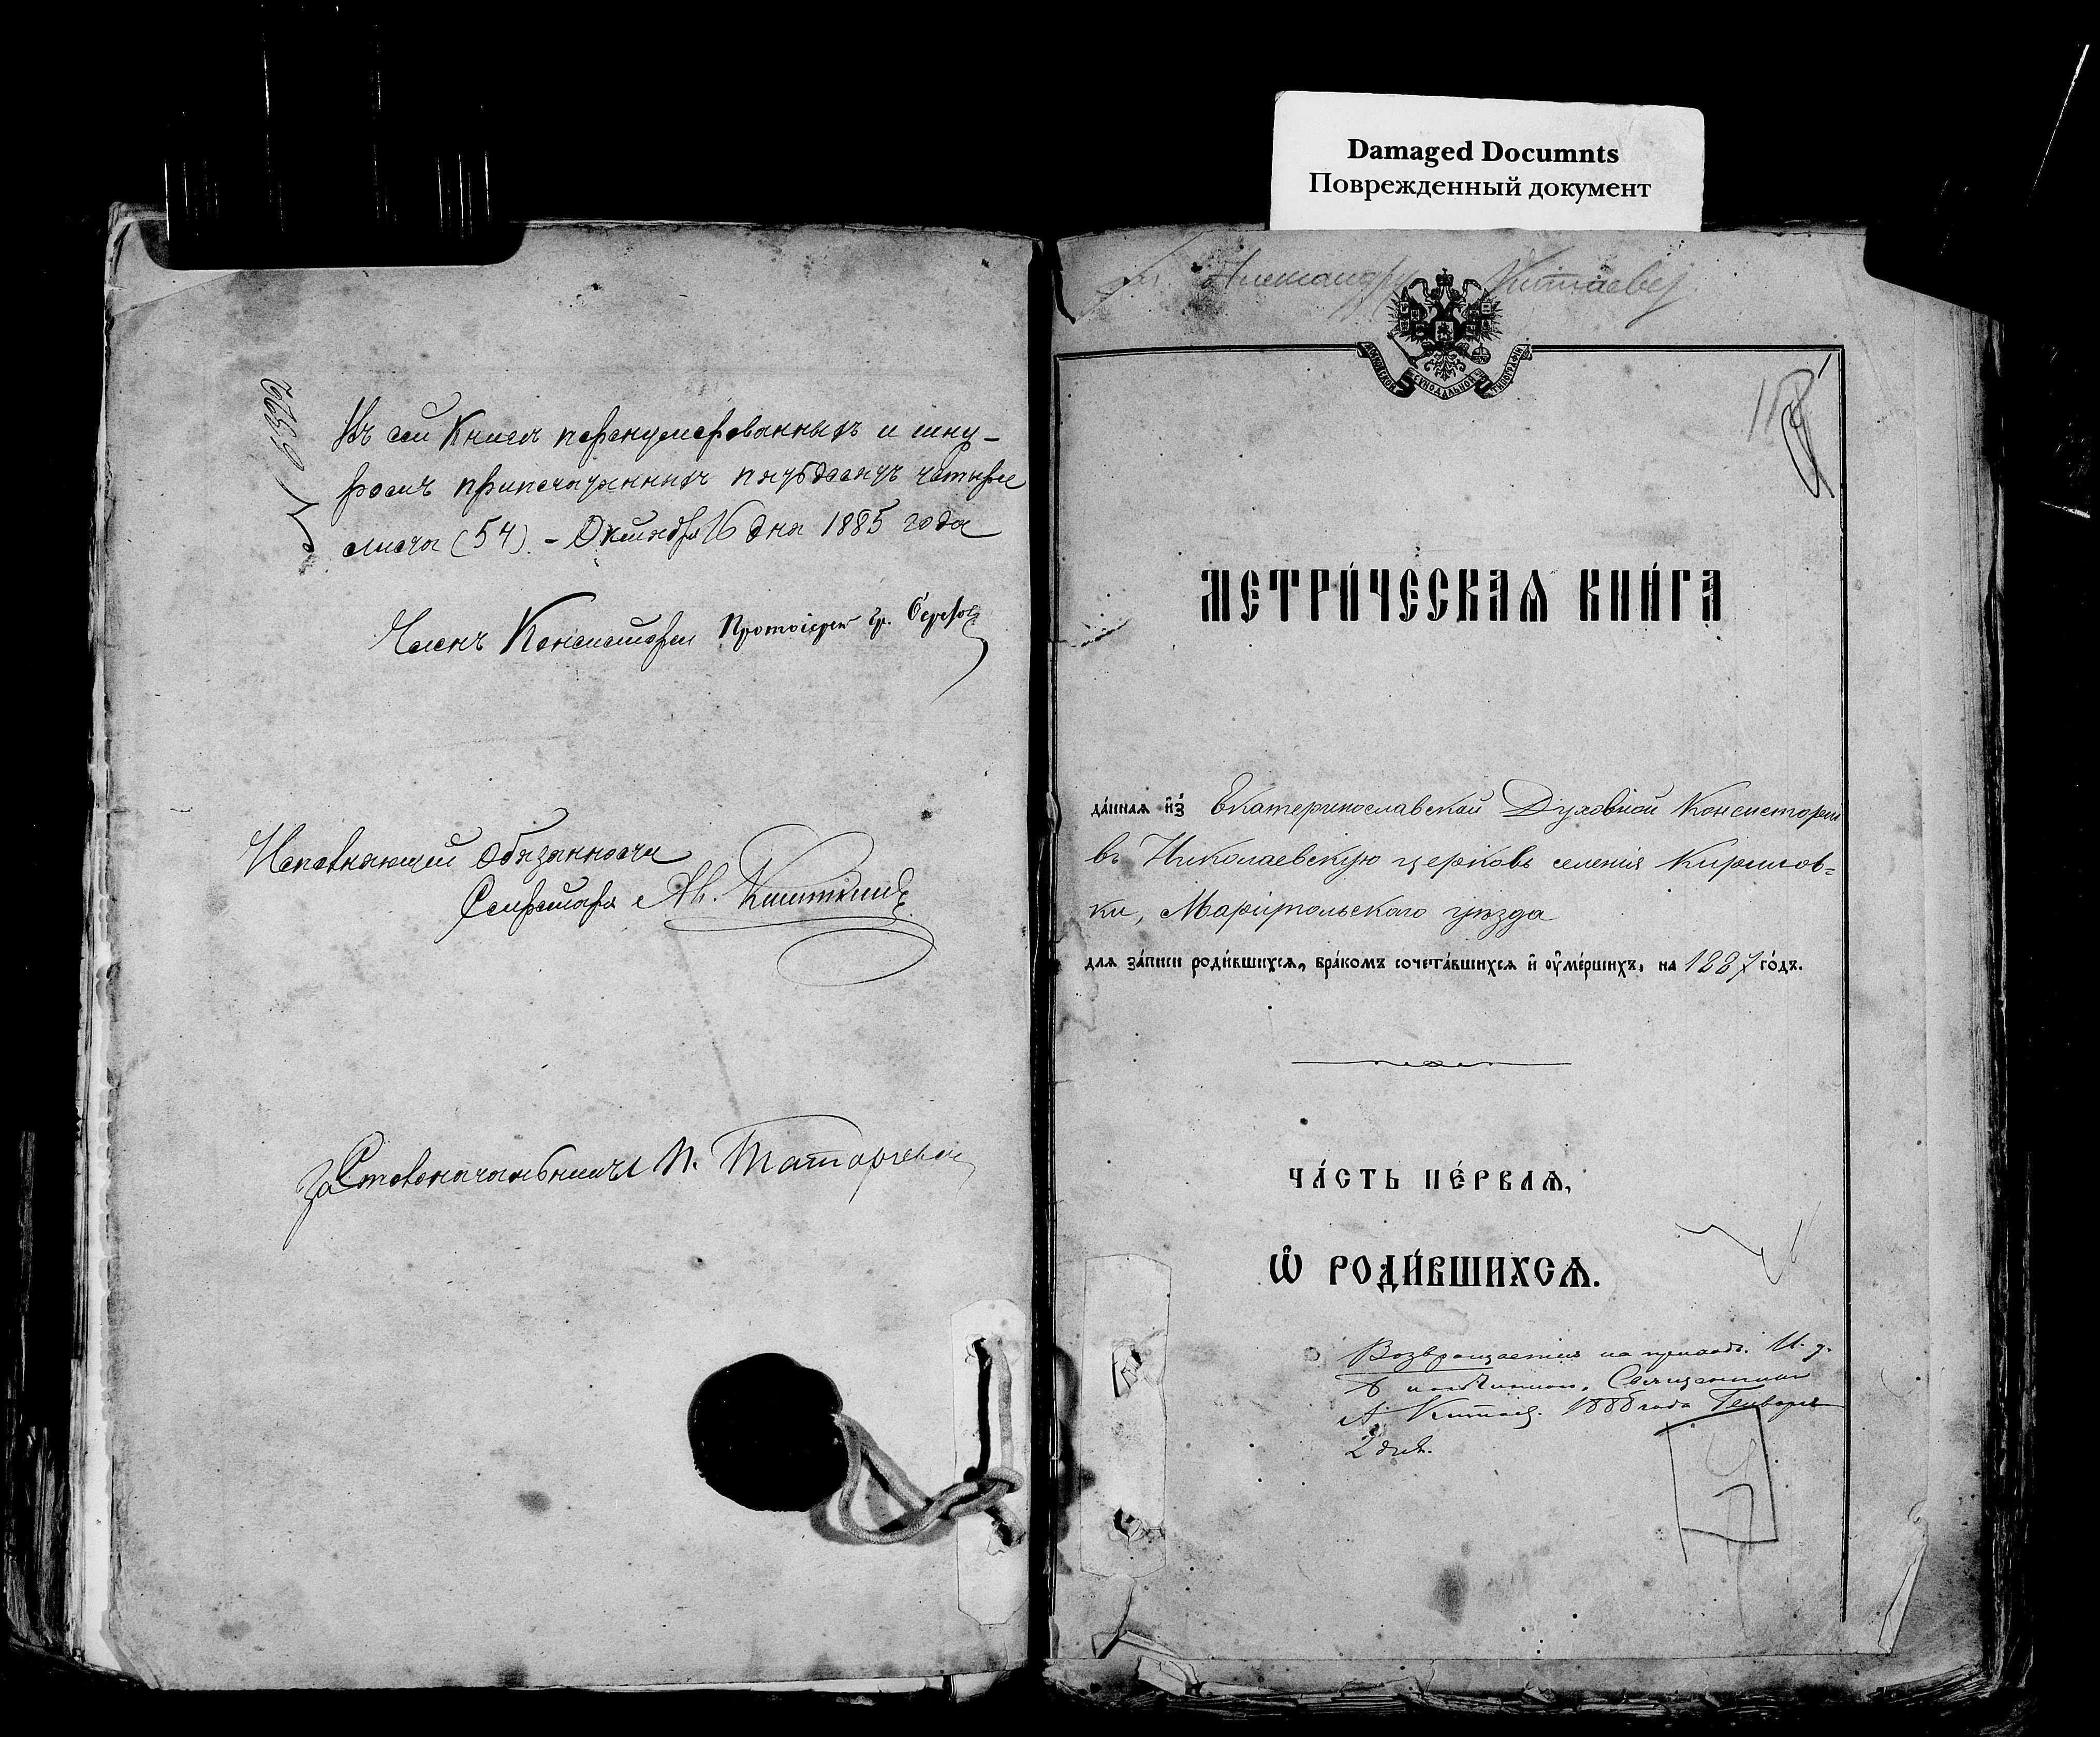 Damaged Documnts
Поврежденный документ
Въ сей Книгѣ перенумерованныхъ и шну-
ромъ припечатанныхъ пятьдесятъ четыре
листа (54). - Октября 16 дня 1885 года
Членъ Консисторіи Протоіерей Гр.
Исполняющій Обязанности
Секретаря Ив.
За Столоначальника П.
Александру Китаеву
МОСКОВСКОЙ СѴНОДАЛЬНОЙ ТИПОГРАФІИ
МЕТРИ́ЧЕСКАѦ КНИ́ГА
да́ннаѧ и҆з̾ Екатеринославской Духовной Консисторіи
въ Николаевскую церковь селенія Кирилов=
ки, Маріупольскаго уѣзда
длѧ за́писи роди́вшихсѧ, бра́комъ сочета́вшихсѧ и҆ ᲂу҆ме́ршихъ, на 1887 го́дъ.
ЧА́СТЬ ПЕ́РВАѦ,
Ѽ РОДИ́ВШИХСѦ.
Возвращается на приходъ. И. д.
Священникъ
А. Китаевъ. 1888 года Генваря
2 дня.